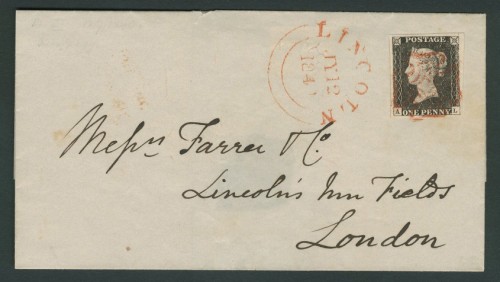 LINCOLN
JY 12
POSTAGE
A ONE PENNY L
Messrs Farrer & Co.
Lincoln's Inn Fields
London